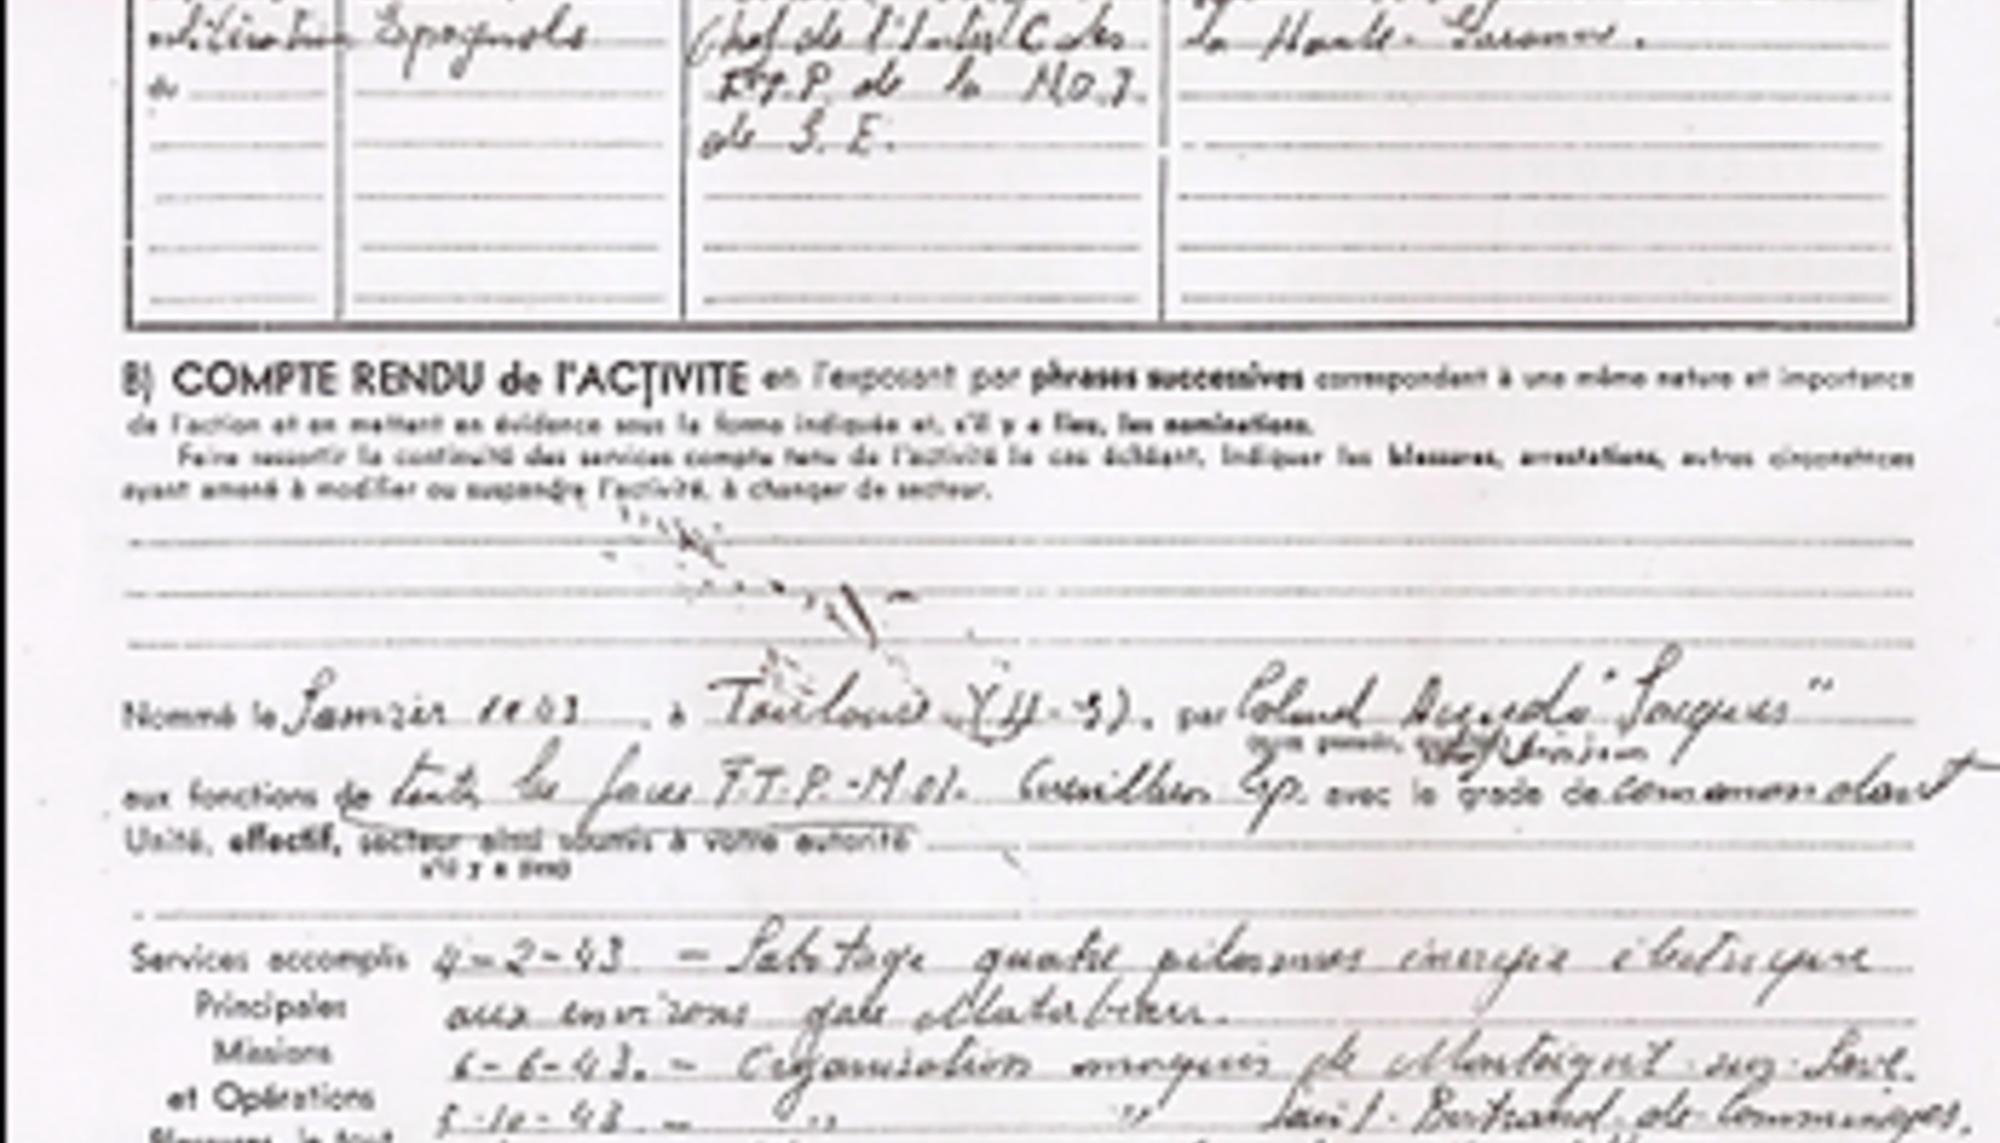 Espagnols
Chef de l'Inter C. des
la Haute-Garonne.
du
F.T.P. de la M.O.I.
de S. E.
B) COMPTE RENDU de l'ACTIVITE en l'exposant par phrases successives correspondant à une même nature et importance
de l'action et en mettant en évidence sous la forme indiquée et, s'il y a lieu, les nominations.
Faire ressortir la continuité des services compte tenu de l'activité le cas échéant, indiquer les blessures, arrestations, autres circonstances
ayant amené à modifier ou suspendre l'activité, à changer de secteur.
Nommé le Janvier 1943 à Toulouse (H-G). par "Jacques"
aux fonctions de F.T.P.-M.O.I. Gp. avec le grade de commandant
Unité, effectif, secteur ainsi soumis à votre autorité
s'il y a lieu
Services accomplis 4-2-43 - Sabotage quatre énergie électrique
Principales aux environs gare Matabiau.
Missions 6-6-43. - Organisation maquis de
et Opérations 5-10-43 - " " Saint-Bertrand-de-Comminges.